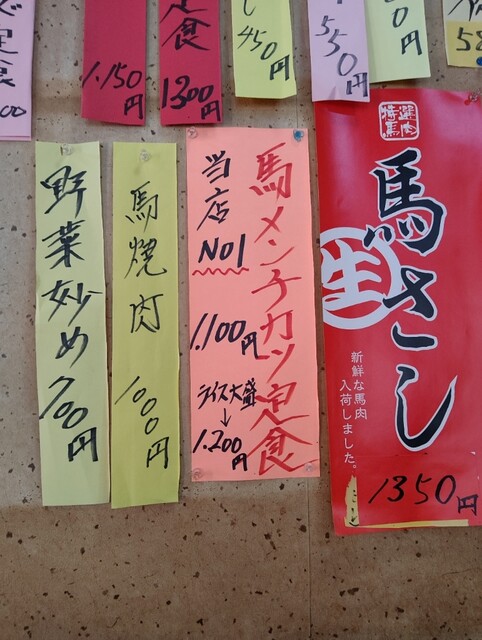 定食
00
1.150円
定食
1300円
し
450円
550円
0円
58
野菜妙め
700円
馬焼肉
1000円
馬メンチカツ定食
当店
NO1
1.100円
ライス大盛
↓
1.200円
特選
馬肉
馬さし
生
新鮮な馬肉
入荷しました。
1350円